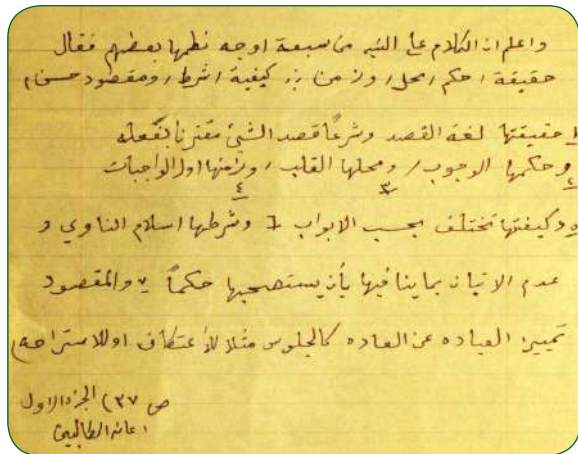 واعلم ان الكلام على النيه من سبعة اوجه نظمها بعضهم فقال
حقيقة / حكم / محل / وزمن / كيفية / شرط / ومقصود حسن /
١ حقيقتها لغة القصد وشرعاً قصد الشيئ مقترنا بفعله
٢ وحكمها الوجوب / ومحلها القلب / وزمنها اول الواجبات
٣ ٤
٥ وكيفيتها تختلف بحسب الابواب ٦ وشرطها اسلام الناوي و
عدم الاتيان بما ينافيها بأن يستصحبها حكماً ٧ والمقصود
تمييز العباده عن العاده كالجلوس مثلا للأعتكاف او للاستراحه /
ص ٣٧) الجزء الاول
اعانه الطالبين